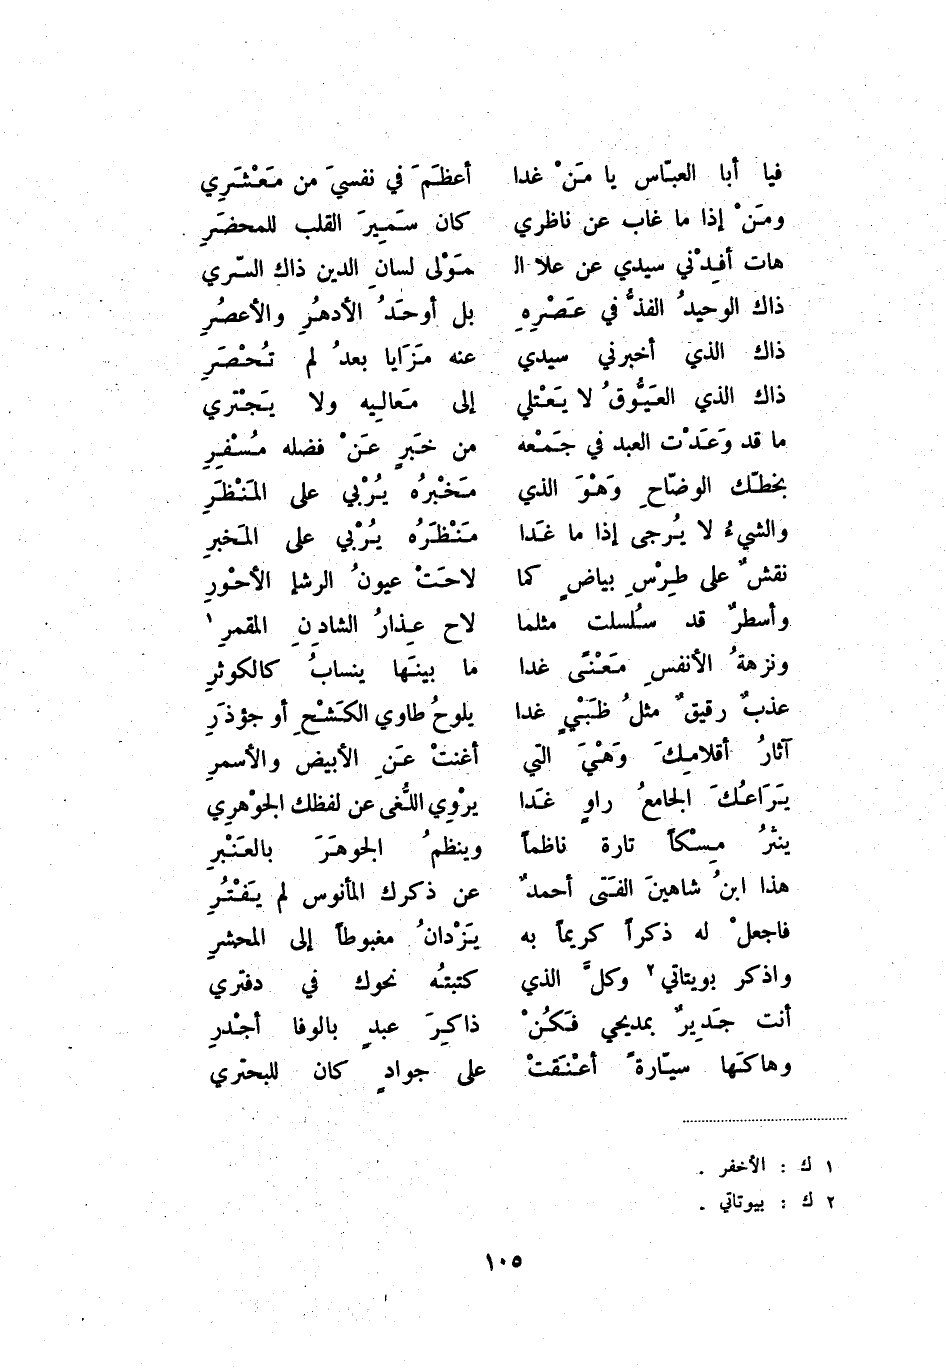 فيا أبا العبّاس يا مَنْ غدا أعظَمَ في نفسيَ من مَعْشَرِي
ومَنْ إذا ما غاب عن ناظري كان سَمِيرَ القلب للمحضَرِ
هات أفِدْني سيدي عن علا الـ ـمَوْلى لسانِ الدين ذاكِ السّري
ذاك الوحيدُ الفذُّ في عَصْرِهِ بل أوحَدُ الأدهُرِ والأعصُرِ
ذاك الذي أخبرني سيدي عنه مَزَايا بعدُ لم تُحْصَرِ
ذاك الذي العَيُّوقُ لا يَعْتلي إلى مَعالِيه ولا يَجْتري
ما قد وَعَدْت العبد في جَمْعه من خبَرٍ عَنْ فضله مُسْفِرِ
بخطّك الوضّاحِ وَهْوَ الذي مَخْبرُه يُرْبي على المَنْظَرِ
والشيءُ لا يُرجى إذا ما غَدا مَنْظَرُه يُرْبي على المَخبرِ
نقشٌ على طِرْسِ بياضٍ كما لاحَتْ عيونُ الرشإ الأحْورِ
وأسطرٌ قد سُلسلت مثلما لاح عِذارُ الشادِنِ المقمرِ ١
ونزهةُ الأنفسِ مَعْنًى غدا ما بينَها ينسابُ كالكوثرِ
عذبٌ رقيقٌ مثلُ ظَبْيٍ غدا يلوحُ طاوي الكَشْحِ أو جؤذَرِ
آثارُ أقلامِكَ وَهْيَ التي أغنتْ عَنِ الأبيض والأسمرِ
يَرَاعُكَ الجامعُ راوٍ غَدا يرْوِي اللُّغى عن لفظك الجوْهرِي
ينثرُ مِسْكاً تارة ناظماً وينظمُ الجوهَرَ بالعَنْبرِ
هذا ابنُ شاهينَ الفَتى أحمدٌ عن ذكرك المأنوس لم يَفْتُرِ
فاجعلْ له ذكراً كريماً به يَزْدانُ مغبوطاً إلى المحشرِ
واذكر بويتاتي ٢ وكلَّ الذي كتبتُه نحوك في دفتري
أنت جَدِيرٌ بمديحي فكُنْ ذاكِرَ عبدٍ بالوفا أجْدرِ
وهاكَها سيّارةً أعْنَقتْ على جوادٍ كان للبحتري
١ ك : الأخفر .
٢ ك : بيوتاتي .
١٠٥